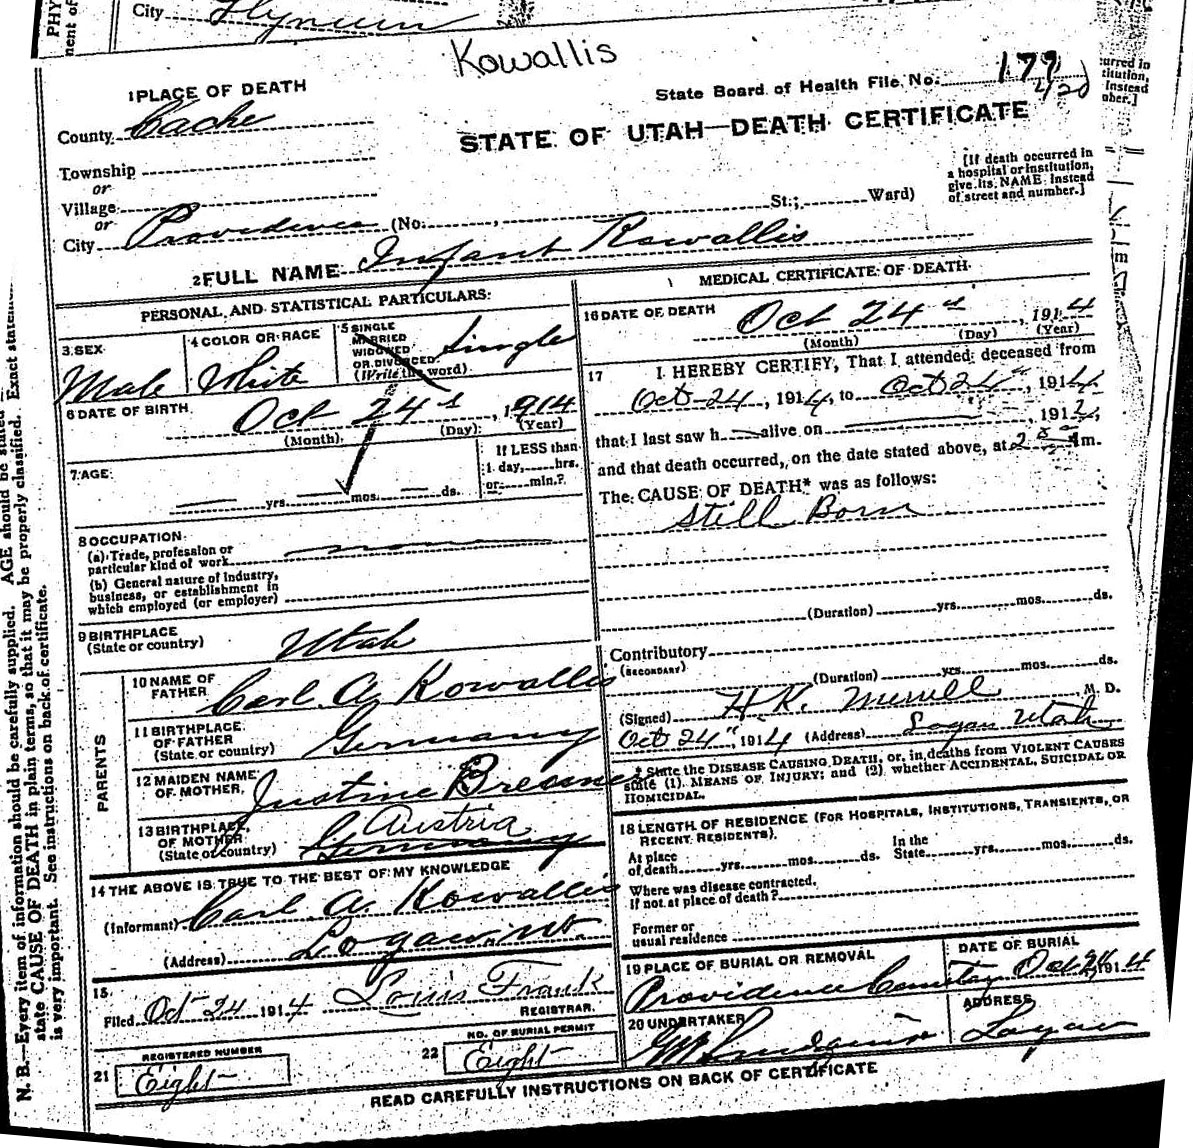 City Hyrum
Kowallis
1 PLACE OF DEATH
State Board of Health File No. 179
County Cache
STATE OF UTAH—DEATH CERTIFICATE
Township
or
Village
or
City Providence (No. , St.; Ward)
[If death occurred in
a hospital or institution,
give its NAME instead
of street and number.]
2 FULL NAME Infant Kowallis
PERSONAL AND STATISTICAL PARTICULARS:
3. SEX
Male
4 COLOR OR RACE
White
5 SINGLE
MARRIED
WIDOWED
OR DIVORCED
(Write the word)
Single
6 DATE OF BIRTH
Oct 24, 1914
(Month) (Day) (Year)
7 AGE
yrs. mos. ds.
If LESS than
1 day, hrs.
or min.?
8 OCCUPATION
(a) Trade, profession or
particular kind of work
(b) General nature of industry,
business, or establishment in
which employed (or employer)
9 BIRTHPLACE
(State or country) Utah
PARENTS
10 NAME OF
FATHER Carl A. Kowallis
11 BIRTHPLACE
OF FATHER
(State or country) Germany
12 MAIDEN NAME
OF MOTHER Justine
13 BIRTHPLACE
OF MOTHER
(State or country) Austria
Germany
14 THE ABOVE IS TRUE TO THE BEST OF MY KNOWLEDGE
(Informant) Carl A. Kowallis
(Address) Logan, Ut.
15.
Filed Oct 24 1914 Louis Frank
REGISTRAR.
REGISTERED NUMBER
21 Eight
NO. OF BURIAL PERMIT
22 Eight
MEDICAL CERTIFICATE OF DEATH
16 DATE OF DEATH
Oct 24, 1914
(Month) (Day) (Year)
17 I HEREBY CERTIFY, That I attended deceased from
Oct-24, 1914, to Oct 24", 1914
that I last saw h alive on , 191
and that death occurred, on the date stated above, at 2 m.
The CAUSE OF DEATH* was as follows:
Still Born
(Duration) yrs. mos. ds.
Contributory
(SECONDARY)
(Duration) yrs. mos. ds.
(Signed) H.K. Merrill, M. D.
Oct 24", 1914 (Address) Logan Utah
* State the DISEASE CAUSING DEATH, or, in deaths from VIOLENT CAUSES
state (1) MEANS OF INJURY; and (2) whether ACCIDENTAL, SUICIDAL OR
HOMICIDAL.
18 LENGTH OF RESIDENCE (FOR HOSPITALS, INSTITUTIONS, TRANSIENTS, OR
RECENT RESIDENTS).
At place
of death yrs. mos. ds.
In the
State yrs. mos. ds.
Where was disease contracted,
if not at place of death?
Former or
usual residence
19 PLACE OF BURIAL OR REMOVAL
Providence Cemetery
DATE OF BURIAL
Oct 24, 1914
20 UNDERTAKER
ADDRESS
Logan
READ CAREFULLY INSTRUCTIONS ON BACK OF CERTIFICATE
N. B.—Every item of information should be carefully supplied. AGE should be stated
state CAUSE OF DEATH in plain terms, so that it may be properly classified. Exact
is very important. See instructions on back of certificate.